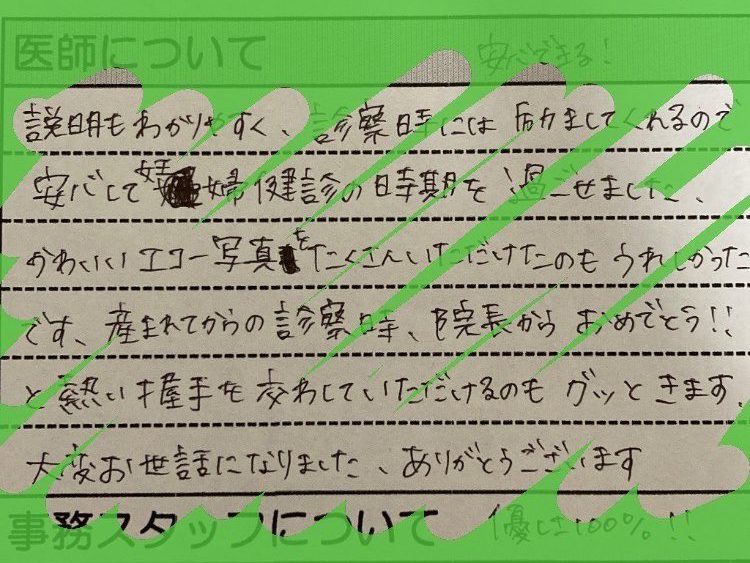 医師について 安心できる!
説明もわかりやすく、診察時には励ましてくれるので
安心して妊婦健診の時期を過ごせました、
かわいいエコー写真をたくさんいただけたのもうれしかった
です、産まれてからの診察時、院長からおめでとう!!
と熱い握手を交わしていただけるのもグッときます、
大変お世話になりました、ありがとうございます
事務スタッフについて 優しさ100%!!